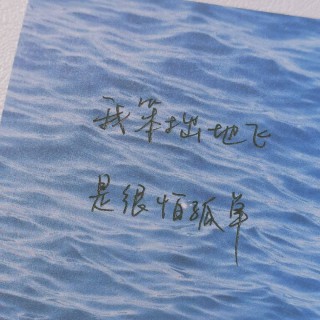 我笨拙地飞
是很怕孤单